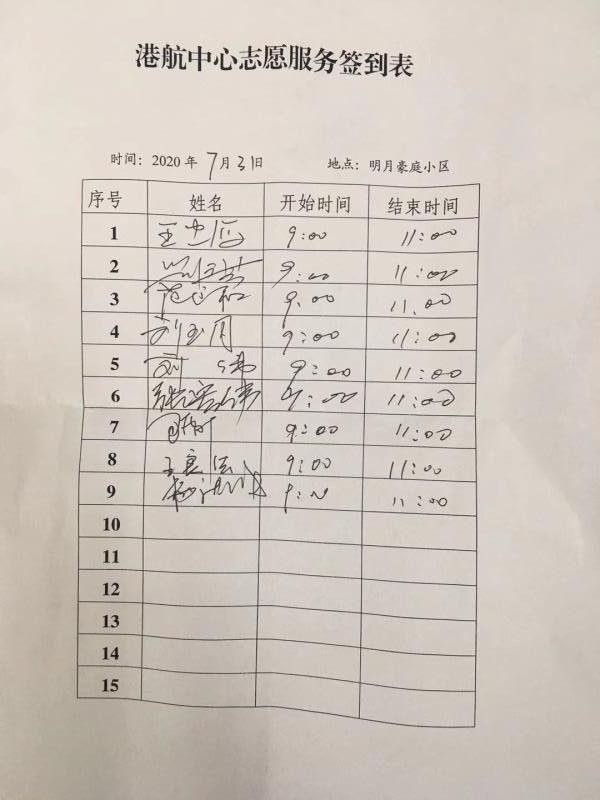 港航中心志愿服务签到表
时间：2020年 7月31日 地点：明月豪庭小区
序号 姓名 开始时间 结束时间
1 9:00 11:00
2 9:00 11:00
3 9:00 11:00
4 刘玉月 9:00 11:00
5 刘 9:00 11:00
6 9:00 11:00
7 9:00 11:00
8 9:00 11:00
9 11:00
10
11
12
13
14
15